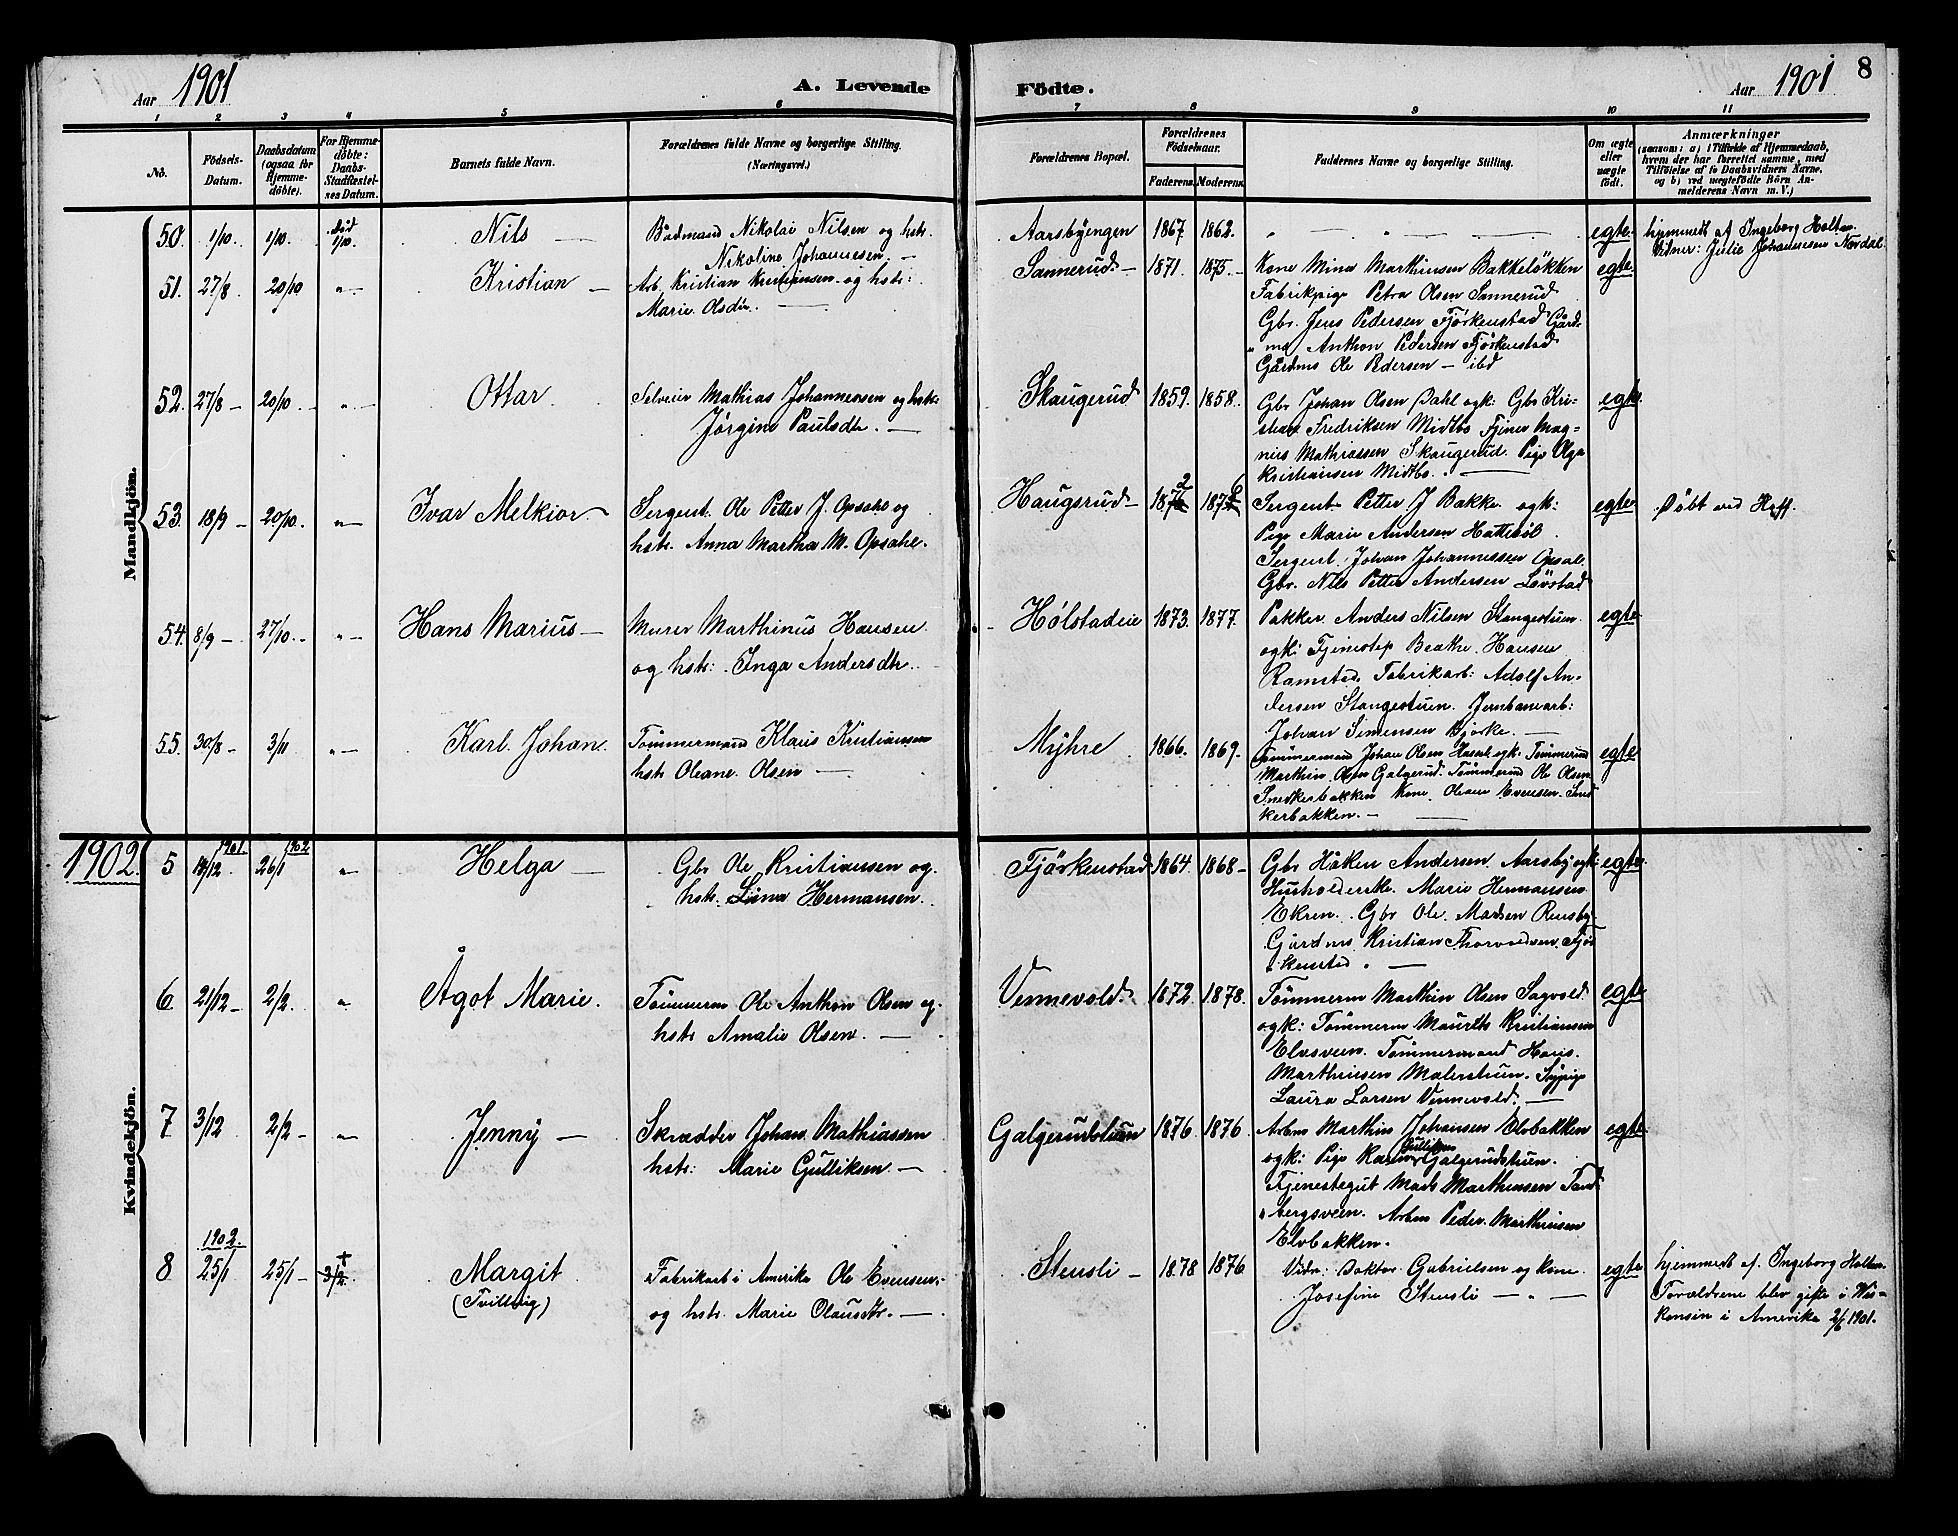 Aar 1901
A. Levende
Födte.
Aar 1901
8
1 2 3 4 5 6 7 8 9 10 11
No.
Födsels-
Datum.
Daabsdatum
(ogsaa for
Hjemme-
döbte).
For Hjemme-
döbte:
Daabs-
Stadfæstel-
ses Datum.
Barnets fulde Navn.
Forældrenes fulde Navne og borgerlige Stilling.
(Næringsvei.)
Forældrenes Bopæl.
Forældrenes
Födselsaar.
Faderens. Moderens.
Faddernes Navne og borgerlige Stilling.
Om ægte
eller
uægte
födt.
Anmærkninger
(saasom: a) i Tilfælde af Hjemmedaab,
hvem der har forrettet samme, med
Tilföielse af to Daabsvidners Navne,
og b) ved uægtefödte Börn An-
melderens Navn m. V.)
Mandkjön.
50. 1/10. 1/10. död 1/10. Nils — Baadmand Nikolai Nilsen og hst:
Nikoline Johannesen. —
Aarsbyengen 1867 1862. " — " — — — egte. hjemmedt af Ingeborg Holten.
Vitner: Julie Johannesen Nordal.
51. 27/8 20/10 "— Kristian — Arb. Kristian Kristiansen og hstr:
Marie Olsdtr. —
Sannerud — 1871. 1875. — Kone Mina Marthinsen Bakkeløkken egte.
Fabrikpige Petra Olsen Sannerud
Gbr. Jens Pedersen Fjörkenstad Gård-
md Anthon Pedersen Fjörkenstad
Gårdms Ole Pedersen — ibd
52. 27/8 — 20/10. — "— Ottar. Selveier Mathias Johannessen og hstr:
Jørgine Paulsdtr. —
Skaugerud 1859. 1858. Gbr Johan Olsen Dahl ogk: Gbr Kri- egte.
stian Fredriksen Midtbo Tjener Mag-
nus Mathiassen Skaugerud. Pige Olga
Kristiansen Midtbo. —
53. 18/9 — 20/10. "— Ivar Melkior — Sergent. Ole Petter J. Opsahl og
hstr. Anna Martha M. Opsahl.
Haugsrud — 1872 1876 Sergent Petter J Bakke ogk: egte Döbt ved Hoff.
Pige Marie Andersen Hattebøl
Sergent. Johan Johannessen Opsal.
Gbr. Nils Petter Andersen Lövstad
54. 8/9 — 27/10. — "— Hans Marius — Murer Marthinus Hansen
og hstr: Inga Andersdtr.
Hølstadeie 1873. 1877. Pakker Anders Nilsen Stangestuen. egte
ogk: Tjenestep Beathe Hansen
Ramstad. Fabrikarb: Adolf An-
dersen Stangestuen. Jernbanearb:
Johan Simensen Bjørke. —
55. 30/8 — 3/11 "— Karl Johan. Tömmermand Klaus Kristiansen
hstr Oleane Olsen —
Myhre 1866. 1869. Tömmermand Johan Olsen ogk: Tömmermd egte
Marthin Olsen Galgerud. Tömmermd Ole Olsen
Snedkerbakken Kone Oleane Evensen. Sned
kerbakken. —
Kvindekjön.
1902. 5 1901. /12. 1902. 26/1 "— Helga — Gbr Ole Kristiansen og
hstr. Hermansen.
Fjörkenstad 1864. 1868 — Gbr Håken Andersen Aarsby ogk: egte
Husholderske. Marie Hermansen
Ekren. Gbr Ole Madsen Rensby
Gårdms Kristian Thorvaldsen Fjör
kenstad. —
6 21/12 — 2/2. " Ågot Marie. Tömmerm Ole Anthon Olsen og
hstr Amalie Olsen. —
Vennevold. 1872. 1878. Tömmerm Marthin Olsen Sagvold. egte
ogk: Tömmerm Mauritz Kristiansen
Elvsveen. Tömmermand Hans
Marthinsen Malerstuen. Sypige
Laura Larsen Vennevold. —
7 3/12 2/2 — "— Jenny — Skrædder Johan Mathiassen
hstr: Marie Gulliksen —
Galgerudstuen 1876. 1876 Arbm Marthin Johansen Elvbakken egte
ogk: Pige Karine Gulliksen Galgerudstuen.
Tjenestegut Mads Marthinsen Tand
bergsveen. Arbm Peder Marthinsen
Elvbakken.
8 1902. 25/1 25/1 — + 3/2. Margit
(Tvilling)
Fabrikarb i Amerika Ole Evensen
og hstr. Marie Olausdtr. —
Stensli — 1878 1876 Vidn: Doktor Gabrielsen og Kone egte
Josefine Stensli — " —
hjemmedt af Ingeborg Holten.
Forældrene blev gifte i Wis-
konsin i Amerika 2/6 1901.